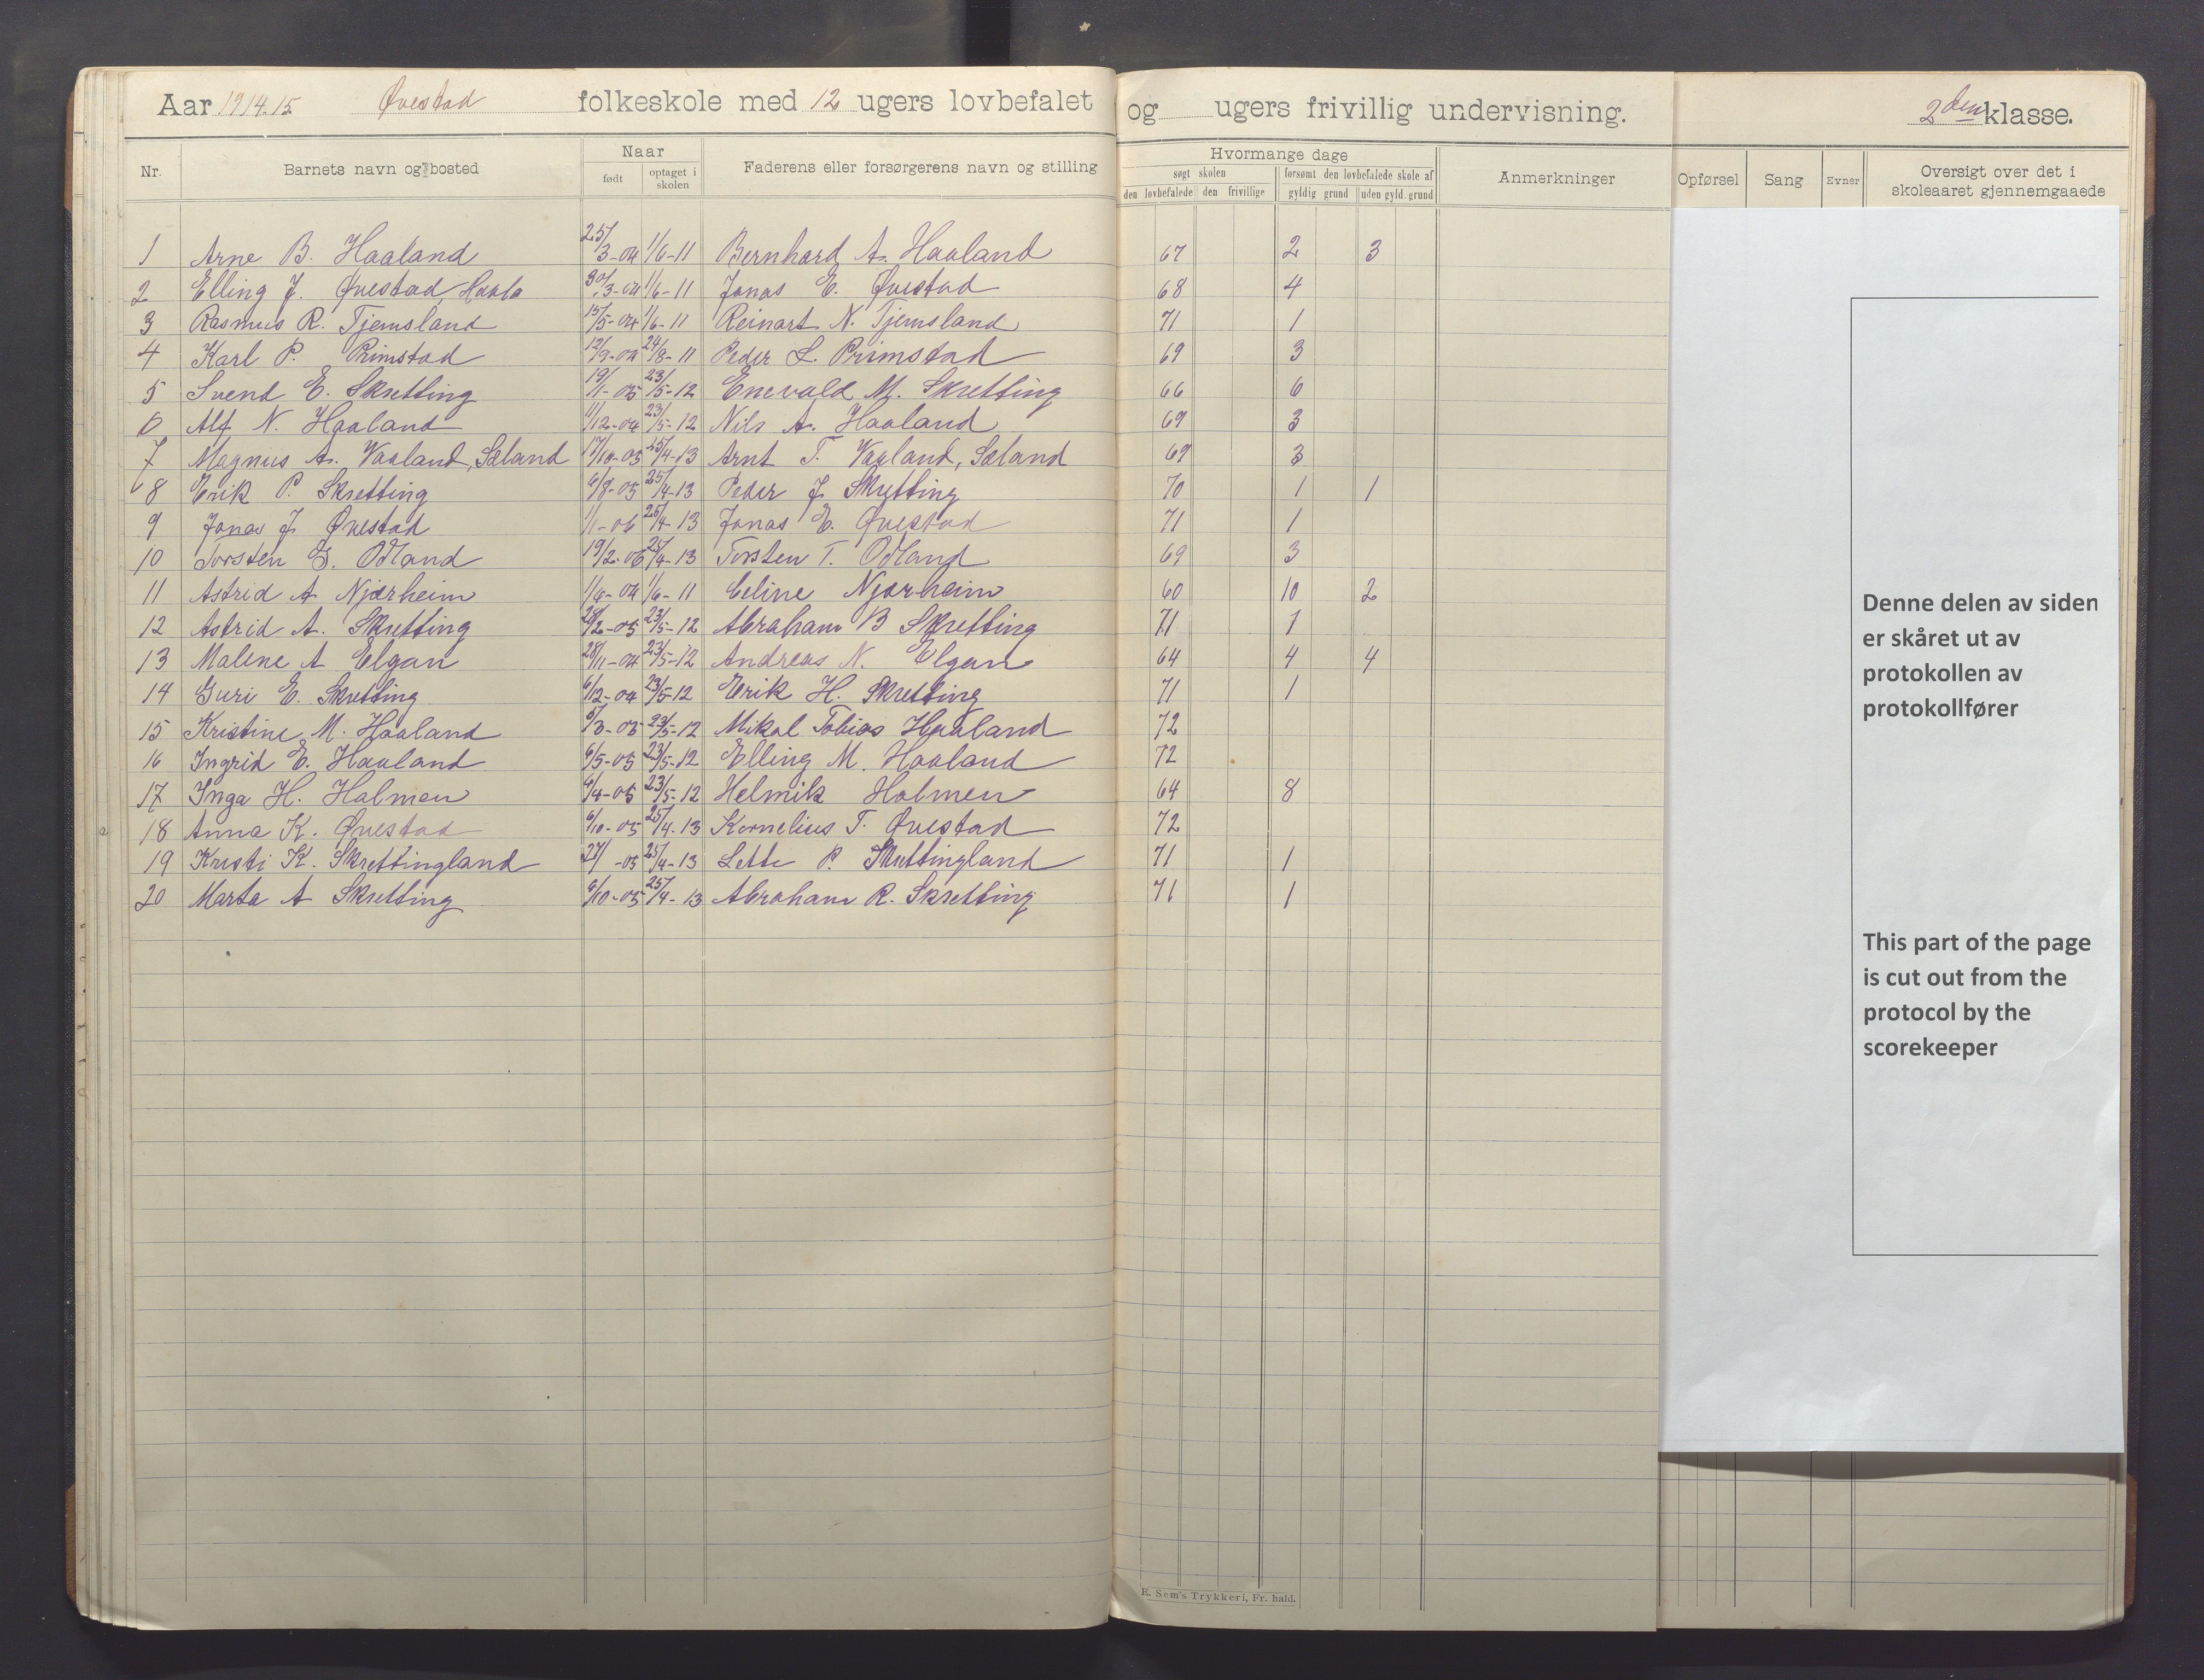 Aar 1914.15 Øvestad folkeskole med 12 ugers lovbefalet og ugers frivillig undervisning. 2den klasse.
Nr. Barnets navn og bosted Naar født optaget i skolen Faderens eller forsørgerens navn og stilling Hvormange dage søgt skolen den lovbefalede den frivillige forsømt den lovbefalede skole af gyldig grund uden gyld. grund Anmerkninger Opførsel Sang Evner Oversigt over det i skoleaaret gjennemgaaede
1 Arne B. Haaland 25/3-04 1/6-11 Bernhard A. Haaland 67 2 3
2 Elling J. Øvestad, Haala 30/3-04 1/6-11 Jonas E. Øvestad 68 4
3 Rasmus R. Tjemsland 15/5-04 1/6-11 Reinart N. Tjemsland 71 1
4 Karl P. Primstad 12/9-04 24/8-11 Peder L. Primstad 69 3
5 Svend E. Skretting 19/1-05 23/5-12 Enevald M. Skretting 66 6
6 Alf N. Haaland 11/12-04 23/5-12 Nils A. Haaland 69 3
7 Magnus A. Vaaland, Sæland 17/10-05 25/4-13 Arnt T. Vaaland, Sæland 69 3
8 Erik P. Skretting 6/8-05 25/4-13 Peder J. Skretting 70 1 1
9 Jonas J. Øvestad 1/1-06 25/4-13 Jonas E. Øvestad 71 1
10 Torsten G. Odland 19/2-06 25/4-13 Torsten T. Odland 69 3
11 Astrid A Njærheim 1/4-04 1/6-11 Celine Njærheim 60 10 2
12 Astrid A. Skretting 28/2-05 23/5-12 Abraham B Skretting 71 1
13 Malene A Elgan 28/11-04 23/5-12 Andreas N. Elgan 64 4 4
14 Guri E. Skretting 6/12-04 23/5-12 Erik H. Skretting 71 1
15 Kristine M. Haaland 5/3-05 23/5-12 Mikal Tobias Haaland 72
16 Ingrid E. Haaland 6/5-05 23/5-12 Elling M. Haaland 72
17 Inga H. Holmen 9/4-05 23/5-12 Helmik Holmen 64 8
18 Anna K. Øvestad 6/10-05 25/4-13 Kornelius T. Øvestad 72
19 Kristi K. Skrettingland 27/ -05 25/4-13 Lette P. Skrettingland 71 1
20 Marta A Skretting 6/10-05 25/4-13 Abraham R. Skretting 71 1
Denne delen av siden
er skåret ut av
protokollen av
protokollfører
This part of the page
is cut out from the
protocol by the
scorekeeper
E. Sem's Trykkeri, Fr. hald.